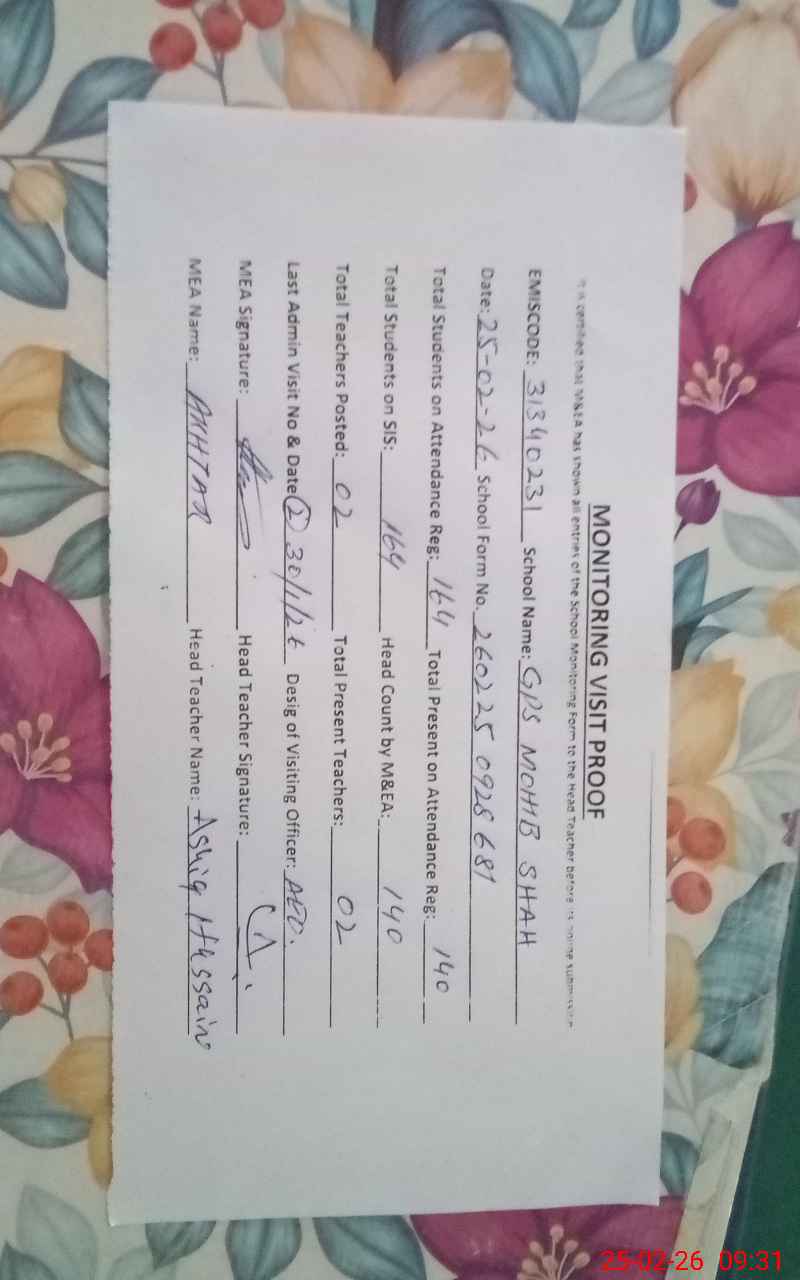 MONITORING VISIT PROOF
It is certified that M&EA has shown all entries of the School Monitoring Form to the Head Teacher before its online submission
EMISCODE: 31340231 School Name: GPS MOHIB SHAH
Date: 25-02-26 School Form No. 260225 0928 681
Total Students on Attendance Reg: 164 Total Present on Attendance Reg: 140
Total Students on SIS: 164 Head Count by M&EA: 140
Total Teachers Posted: 02 Total Present Teachers: 02
Last Admin Visit No & Date 2 30/1/26 Desig of Visiting Officer: AEO.
MEA Signature: Head Teacher Signature:
MEA Name: AKHTAR Head Teacher Name: Ashiq Hussain
25-02-26 09:31